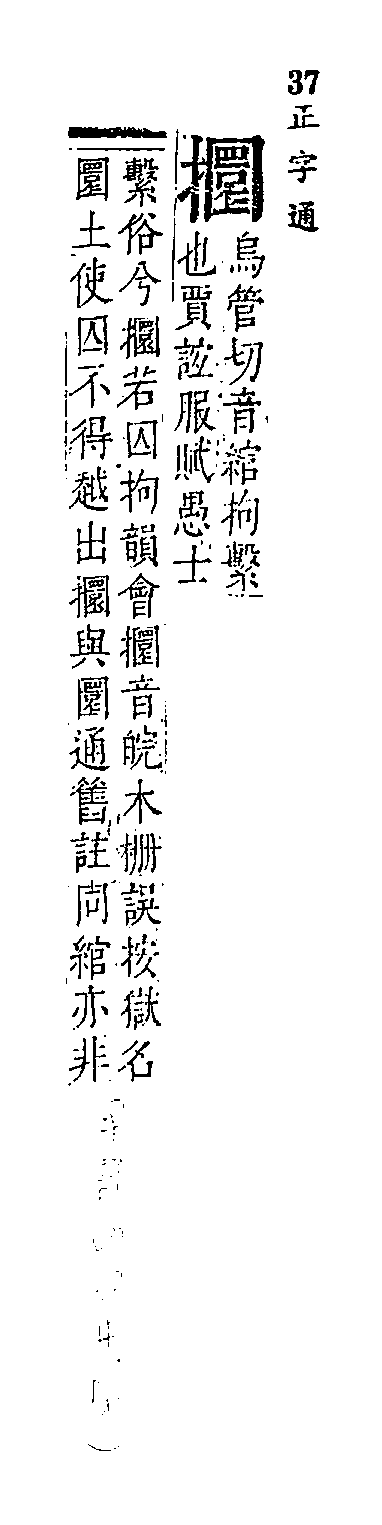 37 正字通
攌
烏管切音綰拘繫
也賈誼服賦愚士
繫俗兮攌若囚拘韻會攌音皖木柵誤按獄名
圜土使囚不得越出攌與圜通舊註同綰亦非